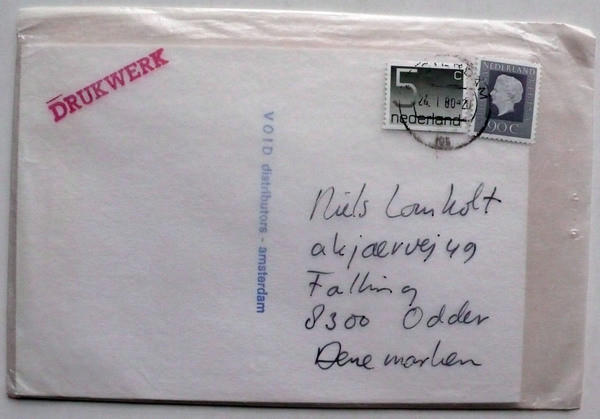 DRUKWERK
5 c
nederland
NEDERLAND
90C
24. I 80
VOID distributors - amsterdam
Niels Lomholt
akjaervej 49
Falling
8300 Odder
Denemarken